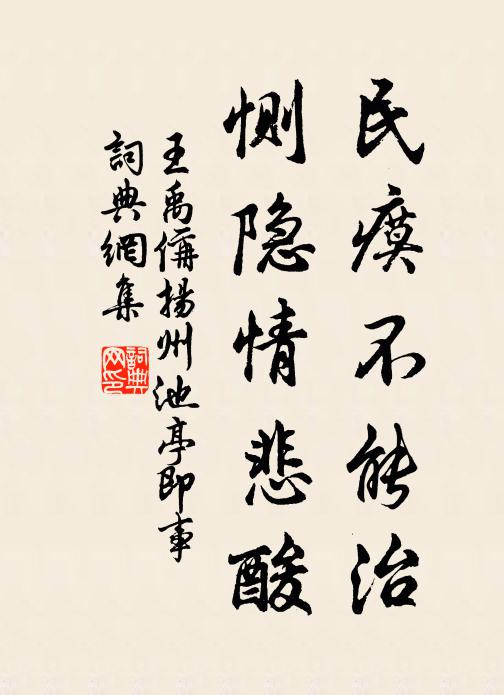 民瘼不能治
恻隐情悲酸
王禹偁扬州池亭即事
詞典網集
詞典网印